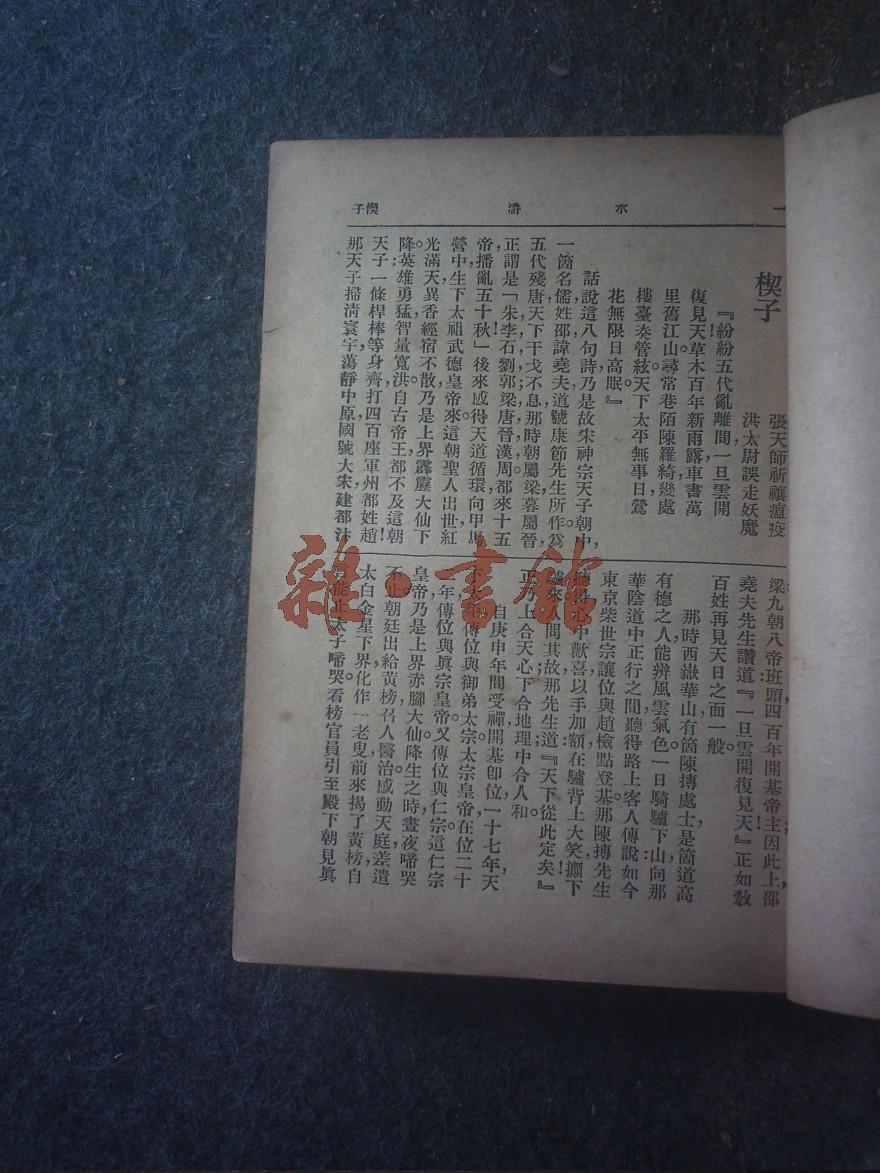 一 水滸 楔子
楔子
張天師祈禳瘟疫
洪太尉誤走妖魔
『紛紛五代亂離間！一旦雲開
復見天。草木百年新雨露，車書萬
里舊江山。尋常巷陌陳羅綺，幾處
樓臺奏管絃。天下太平無事日，鶯
花無限日高眠。』
話說這八句詩乃是故宋神宗天子朝中，
一箇名儒姓邵諱堯夫道號康節先生所作。爲
五代殘唐天下干戈不息，那時朝屬梁，暮屬晉，
正謂是「朱李石劉郭，梁唐晉漢周：都來十五
帝，播亂五十秋！」後來感得天道循環，向甲馬
營中生下太祖武德皇帝來。這朝聖人出世，紅
光滿天，異香經宿不散，乃是上界霹靂大仙下
降。英雄勇猛，智量寬洪。自古帝王都不及這朝
天子：一條桿棒等身齊，打四百座軍州都姓趙！
那天子掃清寰宇，蕩靜中原，國號大宋，建都汴
梁，九朝八帝班頭，四百年開基帝主。因此上邵
堯夫先生讚道：『一旦雲開復見天！』正如敎
百姓再見天日之面一般。
那時西嶽華山有箇陳摶處士，是箇道高
有德之人，能辨風雲氣色。一日騎驢下山，向那
華陰道中正行之間，聽得路上客人傳說：「如今
東京柴世宗讓位與趙檢點登基。」那陳摶先生
聽得，心中歡喜，以手加額，在驢背上大笑，攧下
驢來。人問其故，那先生道：『天下從此定矣！』
正乃上合天心，下合地理，中合人和。
自庚申年間受禪，開基卽位，一十七年，天
下太平，傳位與御弟太宗。太宗皇帝在位二十
二年，傳位與眞宗皇帝。又傳位與仁宗。這仁宗
皇帝乃是上界赤腳大仙，降生之時，晝夜啼哭
不止。朝廷出給黃榜，召人醫治，感動天庭，差遣
太白金星下界，化作一老叟，前來揭了黃榜，自
言能止太子啼哭。看榜官員引至殿下朝見眞
雜·書館